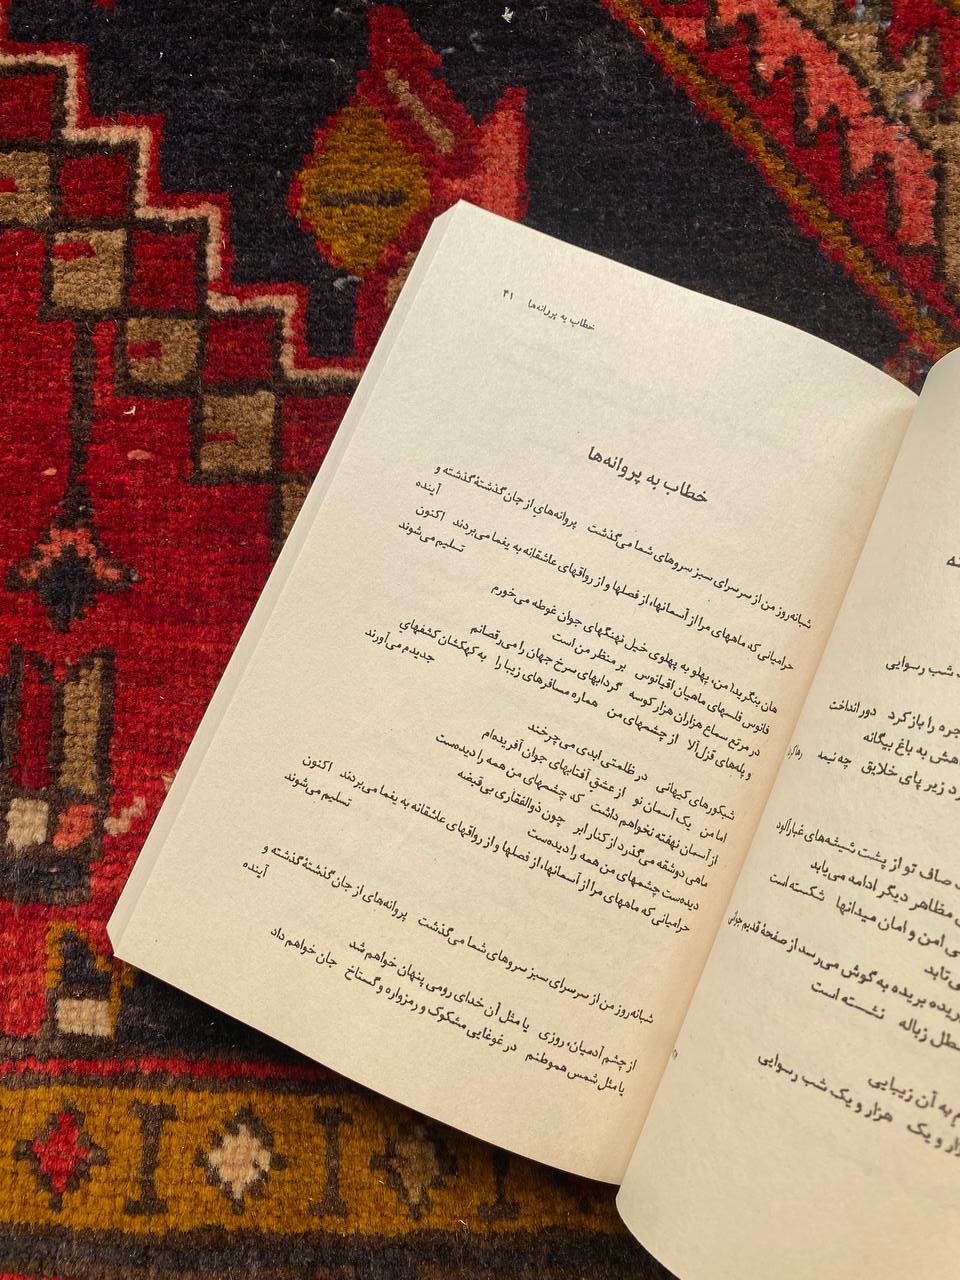 خطاب به پروانه‌ها ۴۱
خطاب به پروانه‌ها
شبانه‌روز من از سرسرای سبز سروهای شما می‌گذشت پروانه‌های از جان گذشتهٔ گذشته و
آینده
حرامیانی که ماههای مرا از آسمانها، از فصلها و از رواقهای عاشقانه به یغما می‌بردند اکنون
تسلیم می‌شوند
هان بنگرید! من، پهلو به پهلوی خیل نهنگهای جوان غوطه می‌خورم
فانوس فلسهای ماهیان اقیانوس بر منظر من است
در مرتع سماع هزاران هزار کوسه گردابهای سرخ جهان را می‌رقصانم
و پله‌های قزل‌آلا از چشمهای من همان مسافرهای زیبا را به کهکشان کشفهای
جدیدم می‌آورند
شبکورهای کیهانی در ظلمتی ابدی می‌چرخند
اما من یک آسمان نو از عشق آفتابهای جوان آفریده‌ام
از آسمان نهفته نخواهم داشت که چشمهای من همه را دیده‌ست
ماهی دوشقه می‌گذرد از کنار ابر چون ذوالفقاری بی‌قبضه
دیده‌ست چشمهای من همه را دیده‌ست
حرامیانی که ماههای مرا از آسمانها، از فصلها و از رواقهای عاشقانه به یغما می‌بردند اکنون
تسلیم می‌شوند
شبانه‌روز من از سرسرای سبز سروهای شما می‌گذشت پروانه‌های از جان گذشتهٔ گذشته و
آینده
از چشم آدمیان، روزی یا مثل آن خدای رومی پنهان خواهم شد
یا مثل شمس هموطنم در غوغایی مشکوک و رمزواره و گستاخ جان خواهم داد
شب رسوایی
جره را باز کرد دور انداخت
هش به باغ بیگانه
رد زیر پای خلایق چه نیمه
صاف تو از پشت شیشه‌های غبارآلود
مظاهر دیگر ادامه می‌یابد
ی امن و امان میدانها شکسته است
بریده بریده به گوش می‌رسد از صفحهٔ قدیم
ی‌تابد
طل زباله نشسته است
م به آن زیبایی
زار و یک هزار و یک شب رسوایی